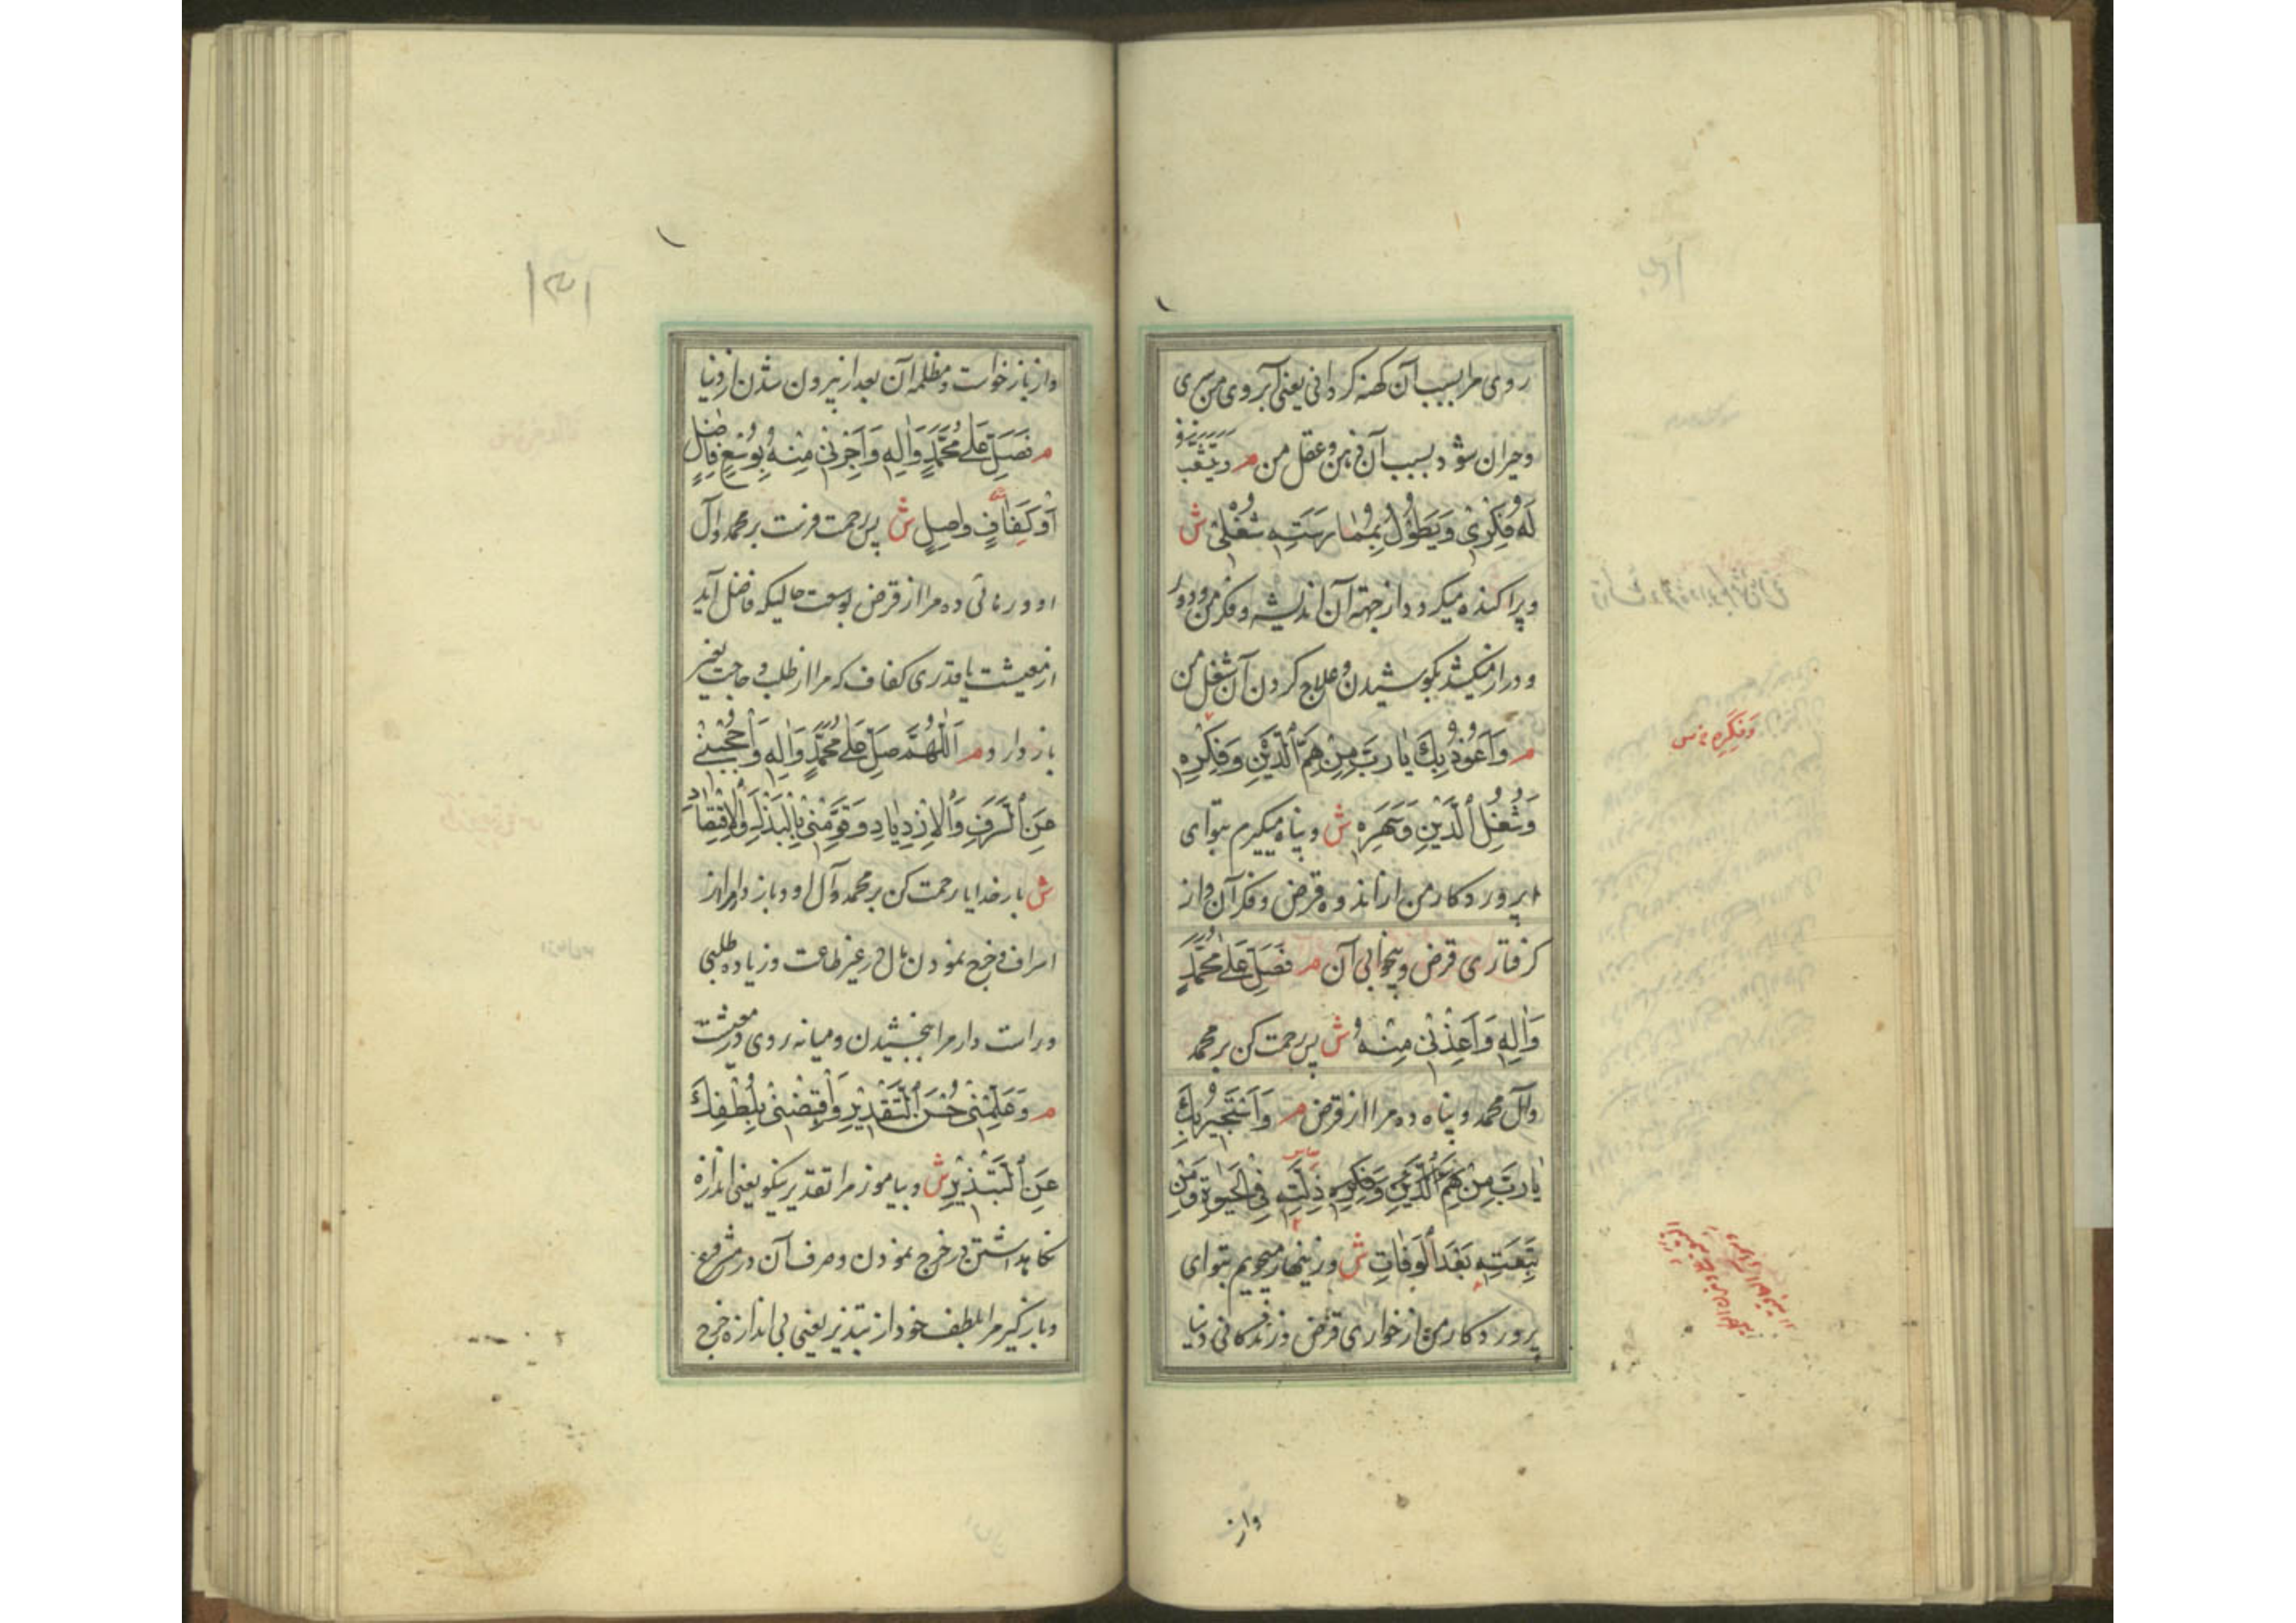 روی مرا بسبب آن کهنه کردانی یعنی آبروی من بری
وحیران شود بسبب آن ذهن وعقل من م ویتشعب
لَهُ فِکْرِیْ وَیَطُوْلُ بِمُمٰارَسَتِهِ شُغْلیْ ش
وپراکنده میکردد از جهته آن اندیشه وفکر من ودور
ودراز میکشد بکوشیدن وعلاج کردن آن شغل من
م وَاَعُوْذُ بِكَ یٰا رَبِّ مِنْ هَمِّ الدَّیْنِ وَفِکْرِهِ
وَشُغْلِ الدَّیْنِ وَسَهَرِهِ ش وپناه میکیرم بتو ای
پرورد کار من از اندوه قرض وفکر آن واز
کرفتاری قرض وبیخوابی آن م فَصَلِّ عَلٰی مُحَمَّدٍ
وَاٰلِهِ وَاَعِذْنیْ مِنْهُ ش پس رحمت کن بر محمد
وآل محمد وپناه ده مرا از قرض م وَاَسْتَجیْرُ بِكَ
یٰا رَبِّ مِنْ هَمِّ الدَّیْنِ وَفِکْرِهِ ذِلَّتِهِ فِی الْحَیٰوةِ وَمِنْ
تَبِعَتِهِ بَعْدَ الْوَفٰاتِ ش وزینهار میجویم بتو ای
پرورد کار من از خواری قرض وزندکانی دنیا
وَفِکَرِهِ س
واز
واز بازخواست ومظلمه آن بعد از بیرون شدن از دنیا
م فَصَلِّ عَلٰی مُحَمَّدٍ وَاٰلِهِ وَاَجِرْنیْ مِنْهُ بِوُسْعٍ فٰاضِلٍ
اَوْ کَفٰافٍ وٰاصِلٍ ش پس رحمت فرست بر محمد وآل
او ورهائی ده مرا از قرض بوسعت حالیکه فاضل آید
از معیشت یا قدری کفاف که مرا از طلب وحاجت بغیر
باز دارد م اَللّٰهُمَّ صَلِّ عَلٰی مُحَمَّدٍ وَاٰلِهِ وَاحْجُبْنیْ
عَنِ السَّرَفِ وَالْاِزْدِیٰادِ وَقَوِّمْنیْ بِالْبَذْلِ وَالْاِقْتِصٰادِ
ش بار خدایا رحمت کن بر محمد وآل او وباز دار مرا از
اسراف وخرج نمودن مال در غیر طاعت وزیاده طلبی
وراست دار مرا ببخشیدن ومیانه روی در معیشت
م وَعَلِّمْنیْ حُسْنَ التَّقْدیْرِ وَاقْبِضْنیْ بِلُطْفِكَ
عَنِ التَّبْذیْرِ ش وبیاموز مرا تقدیر نیکو یعنی اندازه
نکاهداشتن در خرج نمودن وصرف آن در مشروع
وباز کیر مرا بلطف خود از تبذیر یعنی بی اندازه خرج